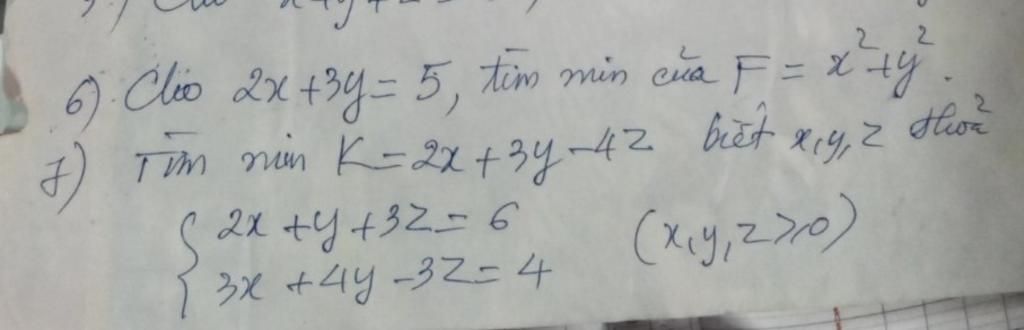 6). Cho 2x+3y=5, tìm min của F = x²+y².
7) Tìm min K=2x+3y-4z biết x,y,z thoả
{ 2x+y+3z=6 (x,y,z≥0)
3x+4y-3z=4